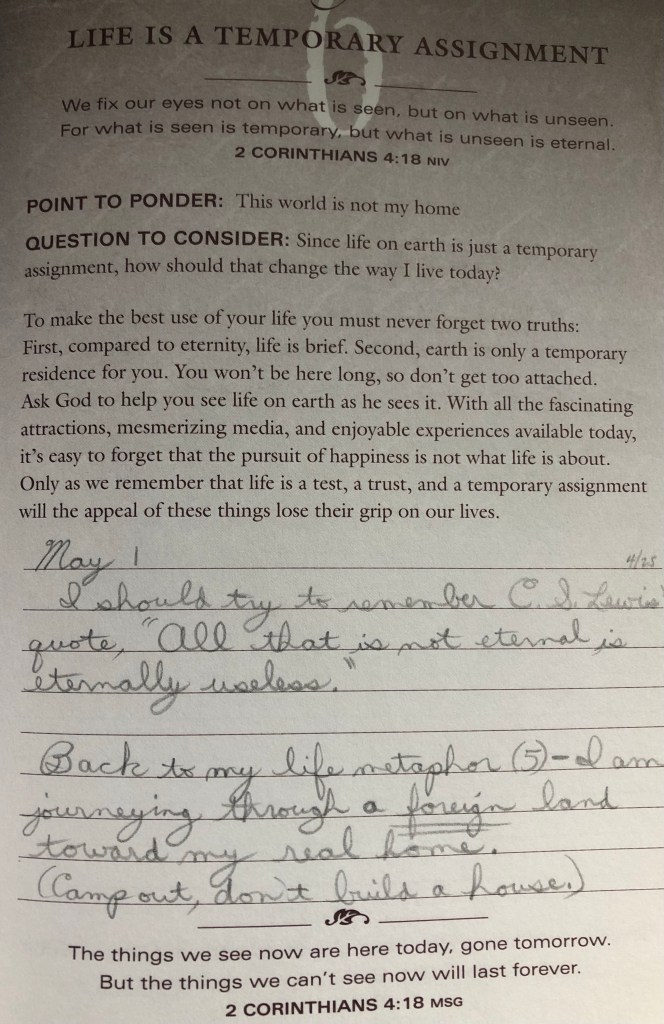 6
LIFE IS A TEMPORARY ASSIGNMENT
We fix our eyes not on what is seen, but on what is unseen.
For what is seen is temporary, but what is unseen is eternal.
2 CORINTHIANS 4:18 NIV
POINT TO PONDER: This world is not my home
QUESTION TO CONSIDER: Since life on earth is just a temporary
assignment, how should that change the way I live today?
To make the best use of your life you must never forget two truths:
First, compared to eternity, life is brief. Second, earth is only a temporary
residence for you. You won't be here long, so don't get too attached.
Ask God to help you see life on earth as he sees it. With all the fascinating
attractions, mesmerizing media, and enjoyable experiences available today,
it's easy to forget that the pursuit of happiness is not what life is about.
Only as we remember that life is a test, a trust, and a temporary assignment
will the appeal of these things lose their grip on our lives.
May 1 4/25
I should try to remember C. S. Lewis'
quote, "All that is not eternal is
eternally useless."
Back to my life metaphor (5)-I am
journeying through a foreign land
toward my real home.
(Camp out, don't build a house.)
The things we see now are here today, gone tomorrow.
But the things we can't see now will last forever.
2 CORINTHIANS 4:18 MSG